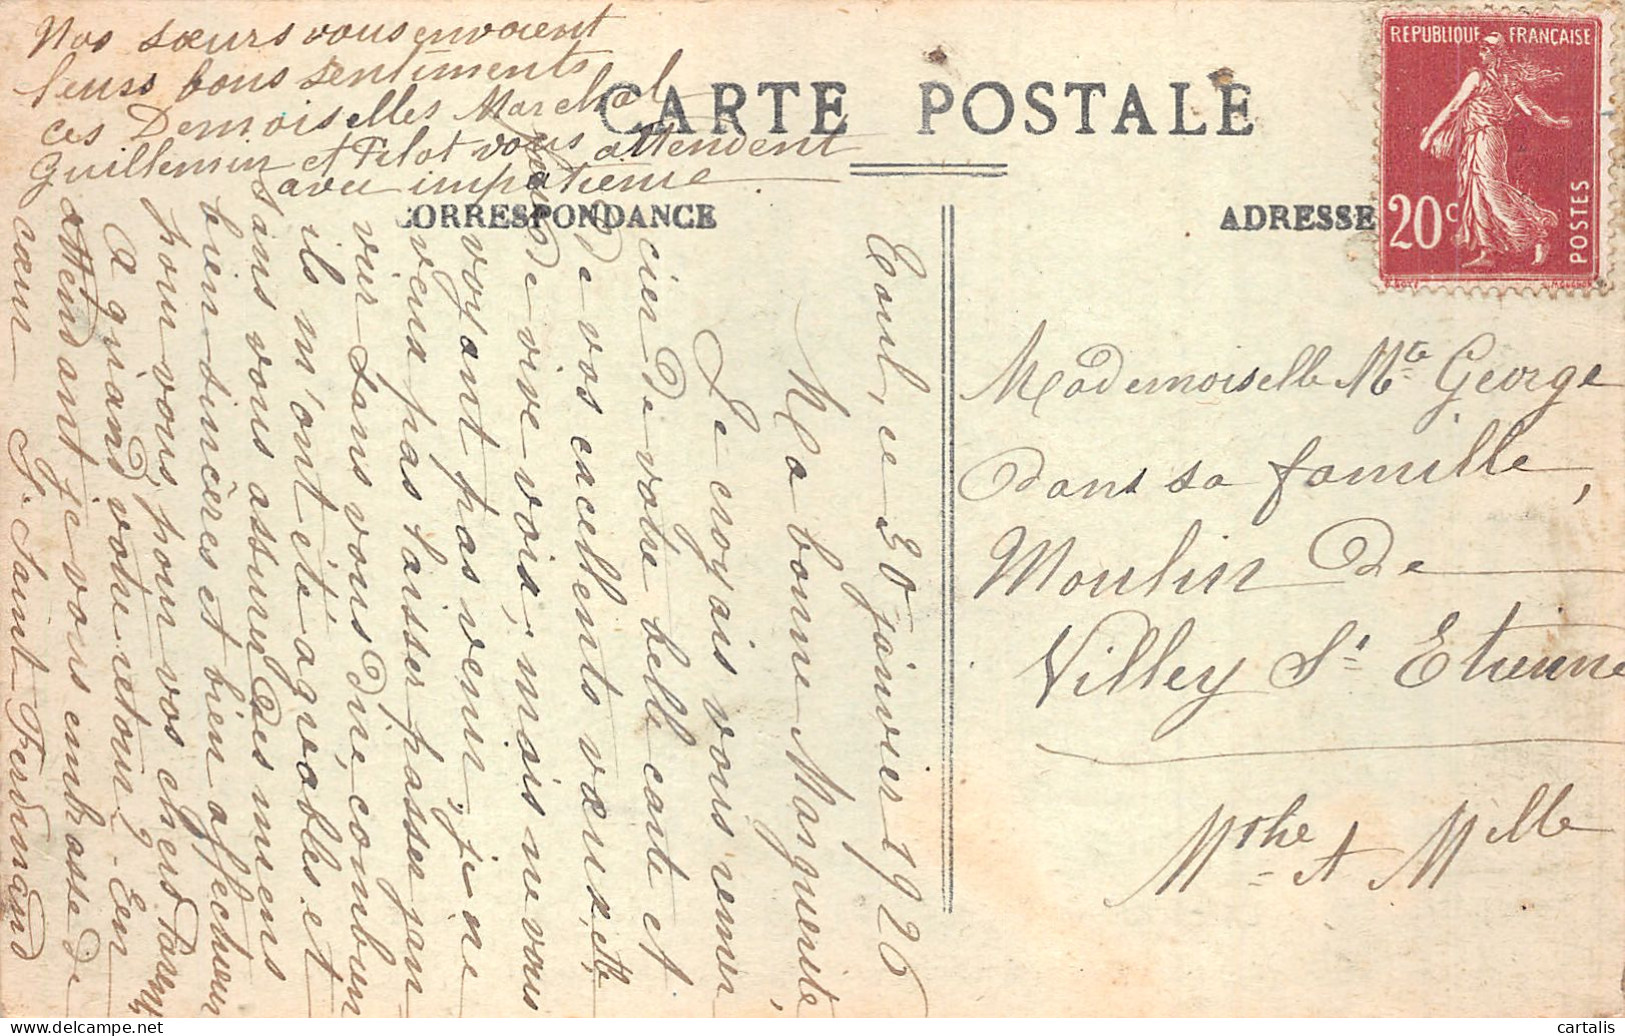 Nos sœurs vous envoient
leurs bons sentiments
ces Demoiselles Marchal
Guillemin et Pilot vous attendent
avec impatience
CARTE POSTALE
CORRESPONDANCE
ADRESSE
REPUBLIQUE FRANÇAISE
20c
POSTES
Toul, ce 30 janvier 1926
Ma bonne Marguerite,
Je croyais vous remer
cier de votre belle carte et
de vos excellents vœux,
de vive voix, mais ne vous
voyant pas venir, je ne
veux pas laisser passer jan-
vier sans vous dire, combien
ils m'ont été agréables et
sans vous assurer des miens
bien sincères et bien affectueux
pour vous, pour vos chers Parents
A quand votre retour? En
attendant je vous embrasse de
cœur Sr Saint Ferdinand
Mademoiselle Mte George
dans sa famille,
Moulin de
Villey St Etienne
Mthe et Mlle
cartalis
delcampe.net